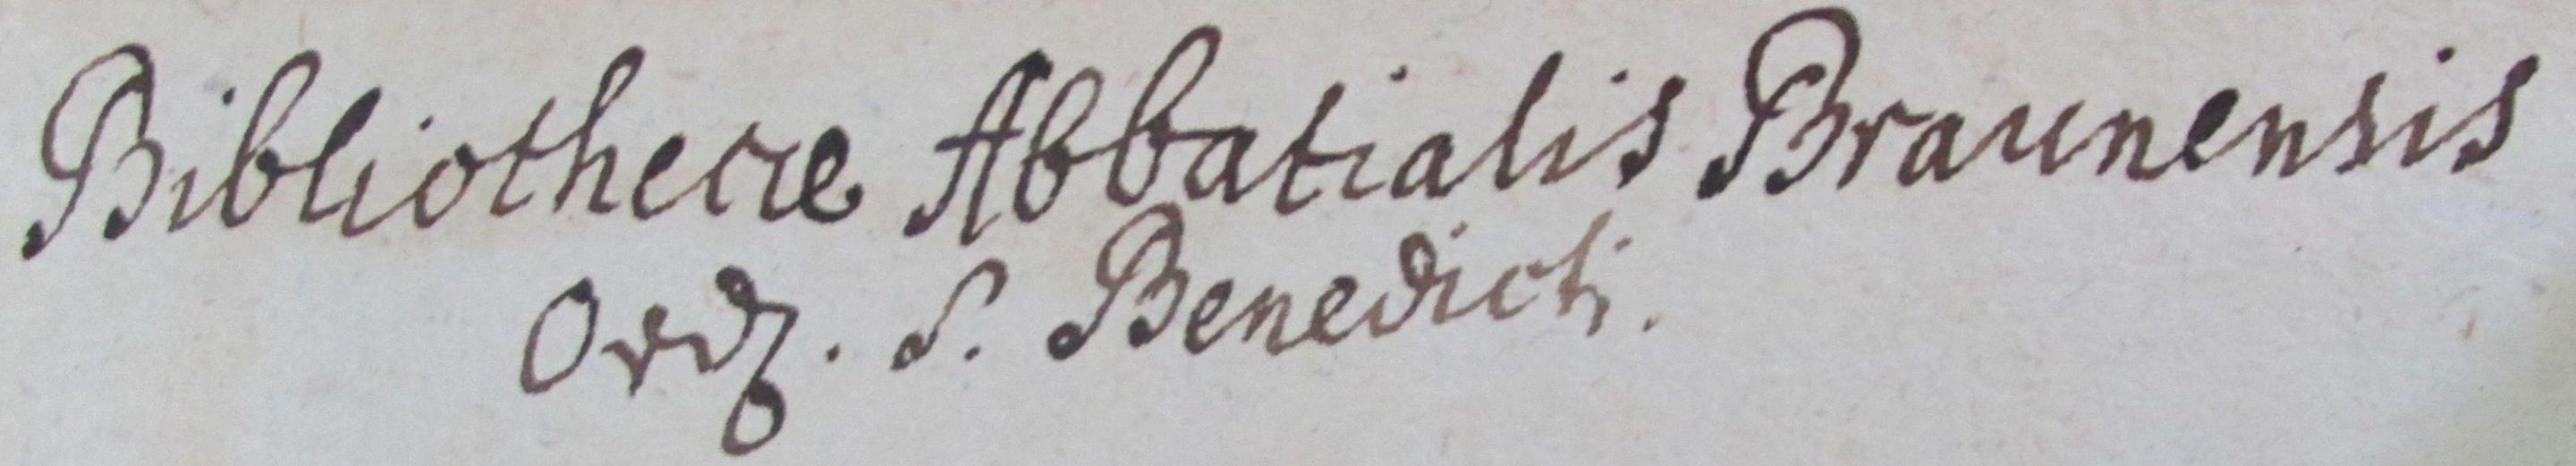 Bibliothecæ Abbatialis Braunensis
Ordῃ. S. Benedicti.